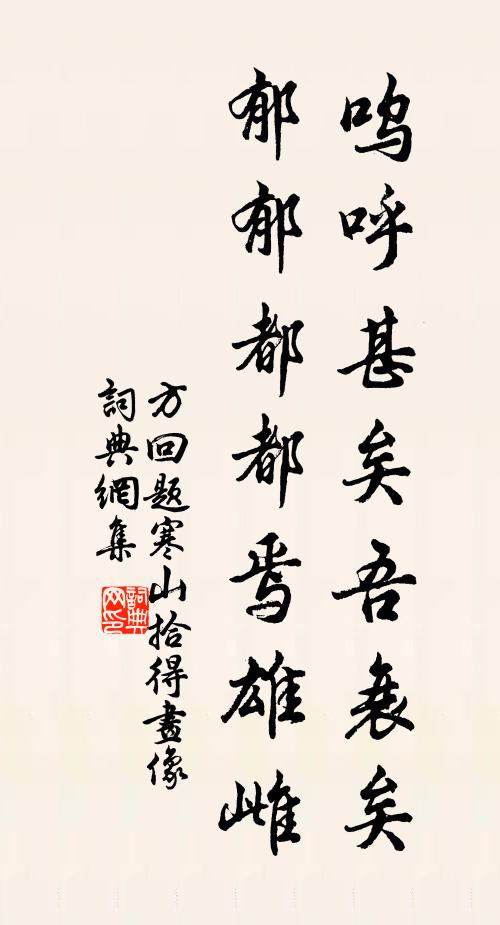 呜呼甚矣吾衰矣
郁郁都都焉雄雌
方回题寒山拾得畫像
詞典網集
詞典网印